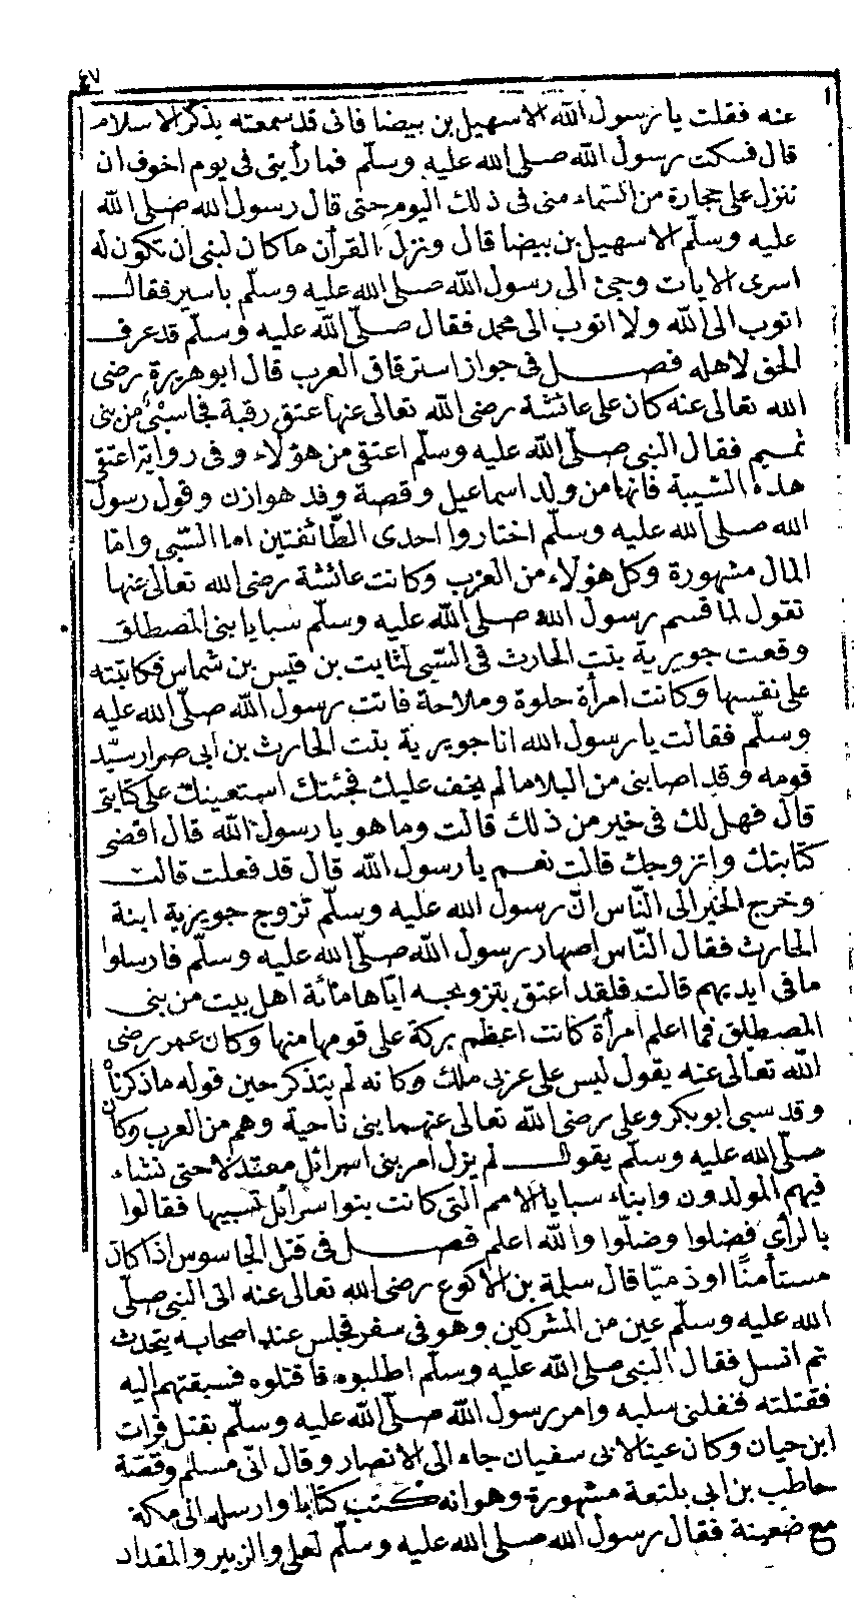 ٤٧
عنه فقلت يا رسول الله الا سهيل بن بيضا فانى قد سمعته يذكر الاسلام
قال فسكت رسول الله صلى الله عليه وسلم فما رأيتنى فى يوم اخوف ان
تنزل على حجارة من السماء منى فى ذلك اليوم حتى قال رسول الله صلى الله
عليه وسلم الا سهيل بن بيضا قال ونزل القرآن ما كان لبنى ان تكون له
اسرى الايات وجئ الى رسول الله صلى الله عليه وسلم باسير فقالـــ
اتوب الى الله ولا اتوب الى محمد فقال صلى الله عليه وسلم قد عرف
الحق لاهله فصــــل فى جواز استرقاق العرب قال ابو هريرة رضى
الله تعالى عنه كان على عائشة رضى الله تعالى عنها عتق رقبة فجا سبى من بنى
تميم فقال النبى صلى الله عليه وسلم اعتقى من هؤلاء وفى رواية اعتقى
هذه النسيبة فانها من ولد اسماعيل وقصة وفد هوازن وقول رسول
الله صلى الله عليه وسلم اختاروا احدى الطائفتين اما السبى واما
المال مشهورة وكل هؤلاء من العرب وكانت عائشة رضى الله تعالى عنها
تقول لما قسم رسول الله صلى الله عليه وسلم سبايا بنى المصطلق
وقعت جويرية بنت الحارث فى السبى لثابت بن قيس بن شماس فكاتبته
على نفسها وكانت امرأة حلوة وملاحة فاتت رسول الله صلى الله عليه
وسلم فقالت يا رسول الله انا جويرية بنت الحارث بن ابى ضرار سيد
قومه وقد اصابنى من البلا ما لم يخف عليك فجئتك استعينك على كتابتى
قال فهل لك فى خير من ذلك قالت وما هو يا رسول الله قال اقضى
كتابتك واتزوجك قالت نعم يا رسول الله قال قد فعلت قالت
وخرج الخبر الى الناس ان رسول الله عليه وسلم تزوج جويرية ابنة
الحارث فقال الناس اصهار رسول الله صلى الله عليه وسلم فارسلوا
ما فى ايديهم قالت فلقد اعتق بتزويجه اياها مائة اهل بيت من بنى
المصطلق فما اعلم امرأة كانت اعظم بركة على قومها منها وكان عمر رضى
الله تعالى عنه يقول ليس على عربى ملك وكانه لم يتذكر حين قوله ما ذكرنا
وقد سبى ابو بكر وعلى رضى الله تعالى عنهما بنى ناحية وهم من العرب وكان
صلى الله عليه وسلم يقولـــ لم يزل امر بنى اسرائل معتدلا حتى نشاء
فيهم المولدون وابناء سبايا الامم التى كانت بنوا سرائل تسبيها فقالوا
بالرأى فضلوا وضلوا والله اعلم فصــــل فى قتل الجاسوس اذا كان
مستأمنًا او ذميا قال سلمة بن الاكوع رضى الله تعالى عنه اتى النبى صلى
الله عليه وسلم عين من المشركين وهو فى سفر فجلس عند اصحابه يتحدث
ثم انسل فقال النبى صلى الله عليه وسلم اطلبوه فاقتلوه فسبقتهم اليه
فقتلته فنفلنى سلبه وامر رسول الله صلى الله عليه وسلم بقتل فرات
ابن حيان وكان عينا لابى سفيان جاء الى الانصار وقال انى مسلم وقصة
حاطب بن ابى بلتعة مشهورة وهو انه كتب كتابا وارسله الى مكة
مع ضعينة فقال رسول الله صلى الله عليه وسلم لعلى والزبير والمقداد